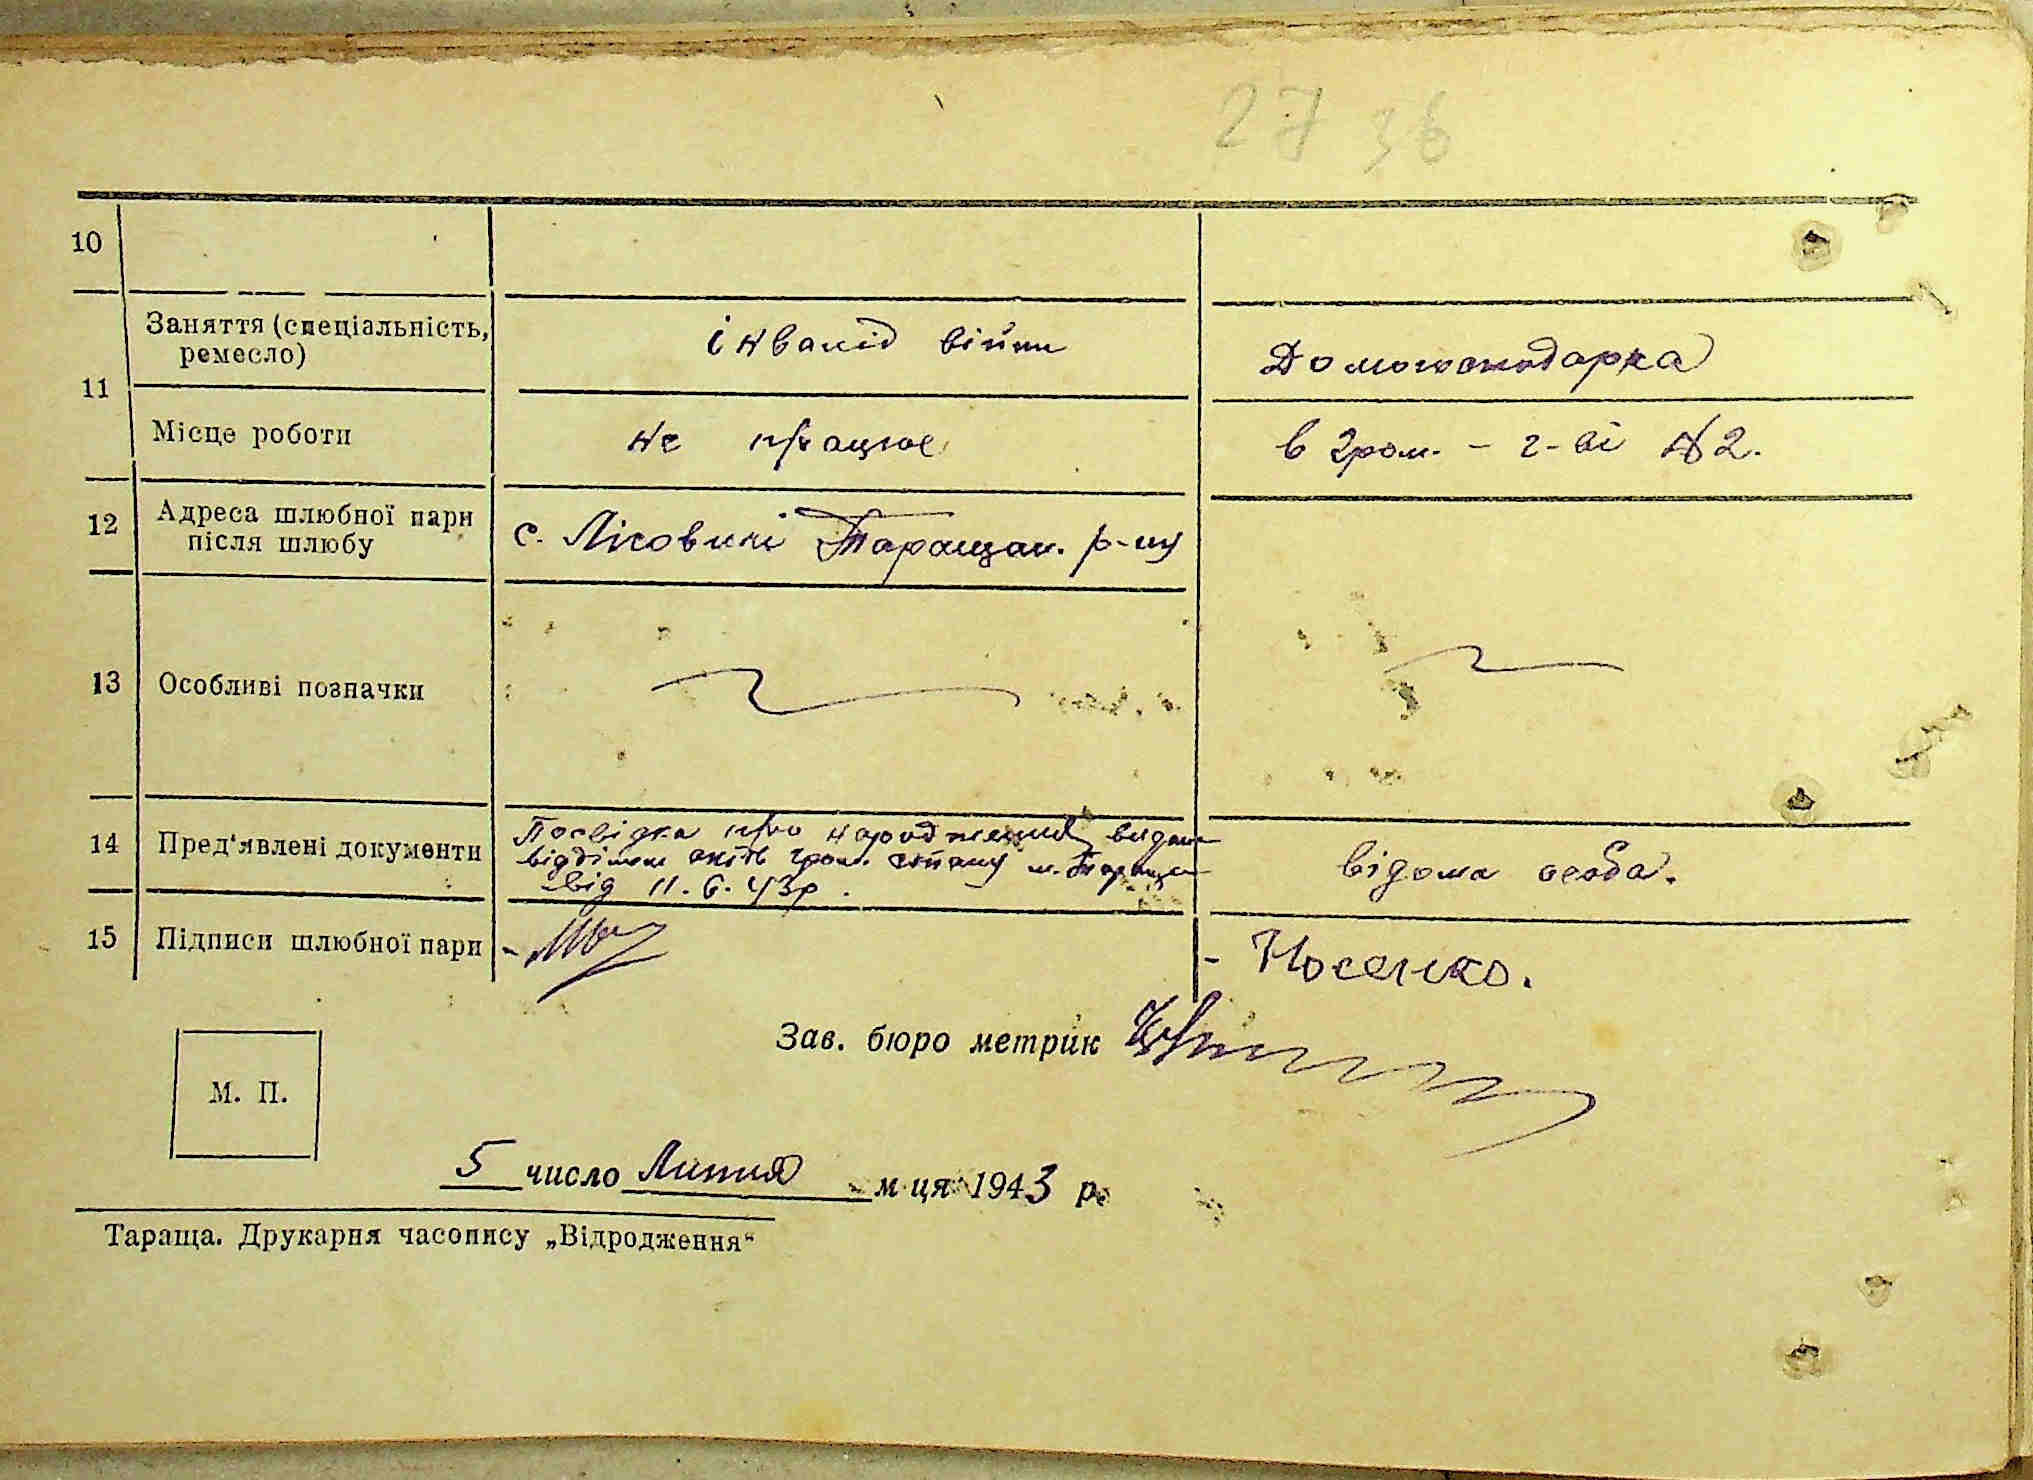 27 36
10
11
Заняття (спеціальність,
ремесло)
інвалід війни
Домогосподарка
Місце роботи
не працює
в гром. - г-ві №2.
12
Адреса шлюбної пари
після шлюбу
с. Лісовичі Таращан. р-ну
13
Особливі позначки
14
Пред'явлені документи
Посвідка про народження видана
відділом актів гром. стану м. Тараща
від 11.6.43р.
відома особа.
15
Підписи шлюбної пари
- Носенко.
Зав. бюро метрик
М. П.
5 число Липня м-ця 1943 р.
Тараща. Друкарня часопису „Відродження“